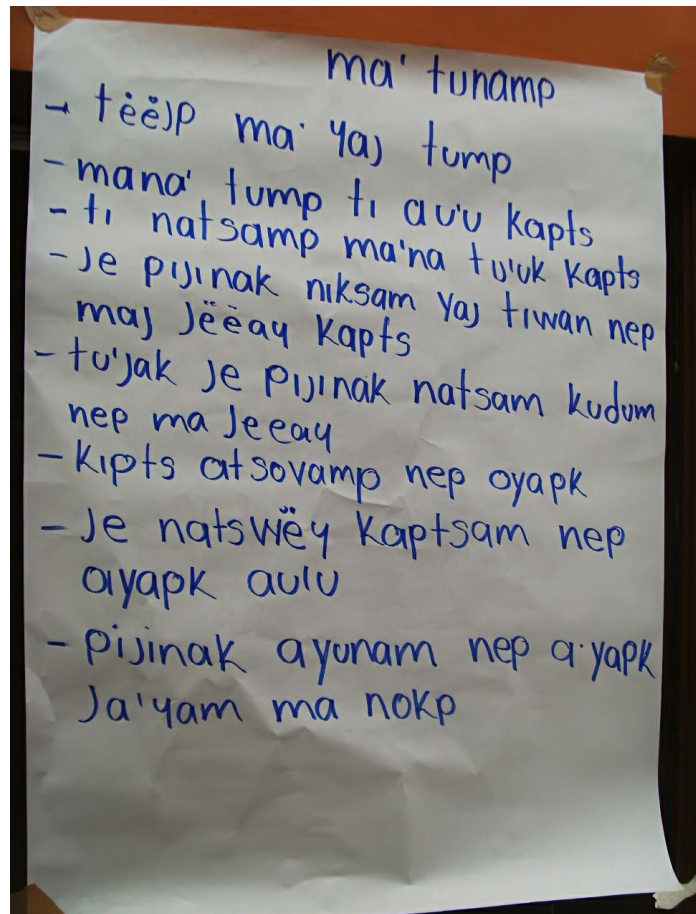 ma' tunamp
- tëëjp ma' yaj tump
- mana' tump ti au'u kapts
- ti natsamp ma'na tu'uk kapts
- je pijinak niksam yaj tiwan nep
maj jëëay kapts
- tu'jak je pijinak natsam kudum
nep ma jeeay
- kipts atsovamp nep oyapk
- je natswëy kaptsam nep
oyapk au'u
- pijinak ayunam nep a'yapk
ja'yam ma nokp